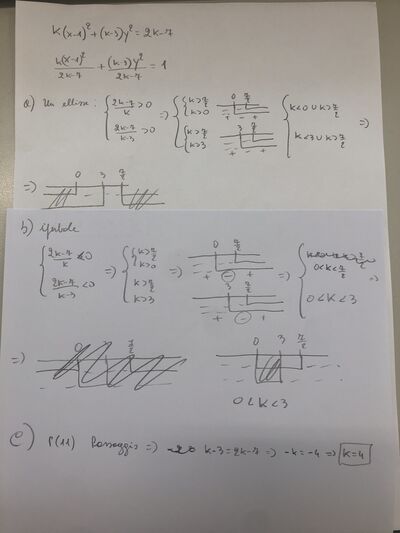 k(x-1)² + (k-3)y² = 2k-7
k(x-1)²/2k-7 + (k-3)y²/2k-7 = 1
a) Un ellisse: { 2k-7/k > 0 => { k > 7/2 k > 0 0 7/2 + - + { k < 0 ∪ k > 7/2 =>
2k-7/k-3 > 0 { k > 7/2 k > 3 3 7/2 + - + k < 3 ∪ k > 7/2
=> 0 3 7/2
b) iperbole
{ 2k-7/k < 0 => { k > 7/2 k > 0 => 0 7/2 + - + => { 0 < k < 7/2 =>
2k-7/k-3 < 0 k > 7/2 k > 3 3 7/2 + - +
0 < k < 3
=> 0 7/2 0 3 7/2
0 < k < 3
c) P(11) Passaggio => k-3 = 2k-7 => -k = -4 => k=4